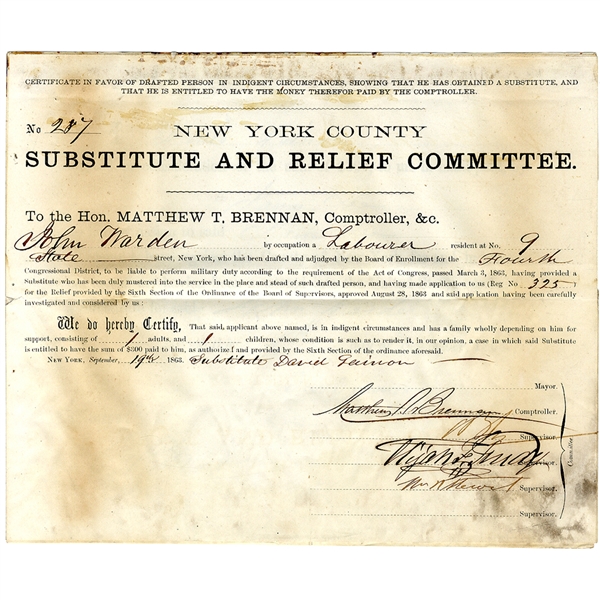 CERTIFICATE IN FAVOR OF DRAFTED PERSON IN INDIGENT CIRCUMSTANCES, SHOWING THAT HE HAS OBTAINED A SUBSTITUTE, AND
THAT HE IS ENTITLED TO HAVE THE MONEY THEREFOR PAID BY THE COMPTROLLER.
No 217
NEW YORK COUNTY
SUBSTITUTE AND RELIEF COMMITTEE.
To the Hon. MATTHEW T. BRENNAN, Comptroller, &c.
John Warden by occupation a Labourer resident at No. 9
State street, New York, who has been drafted and adjudged by the Board of Enrollment for the Fourth
Congressional District, to be liable to perform military duty according to the requirement of the Act of Congress, passed March 3, 1863, having provided a
Substitute who has been duly mustered into the service in the place and stead of such drafted person, and having made application to us (Reg No. 325)
for the Relief provided by the Sixth Section of the Ordinance of the Board of Supervisors, approved August 28, 1863 and said application having been carefully
investigated and considered by us:
We do hereby Certify, That said applicant above named, is in indigent circumstances and has a family wholly depending on him for
support, consisting of 1 adults, and 1 children, whose condition is such as to render it, in our opinion, a case in which said Substitute
is entitled to have the sum of $300 paid to him, as authorized and provided by the Sixth Section of the ordinance aforesaid.
NEW YORK, September 19th 1863. Substitute David
Mayor.
Matthew T. Brennan Comptroller.
Supervisor.
Supervisor.
Supervisor.
Committee